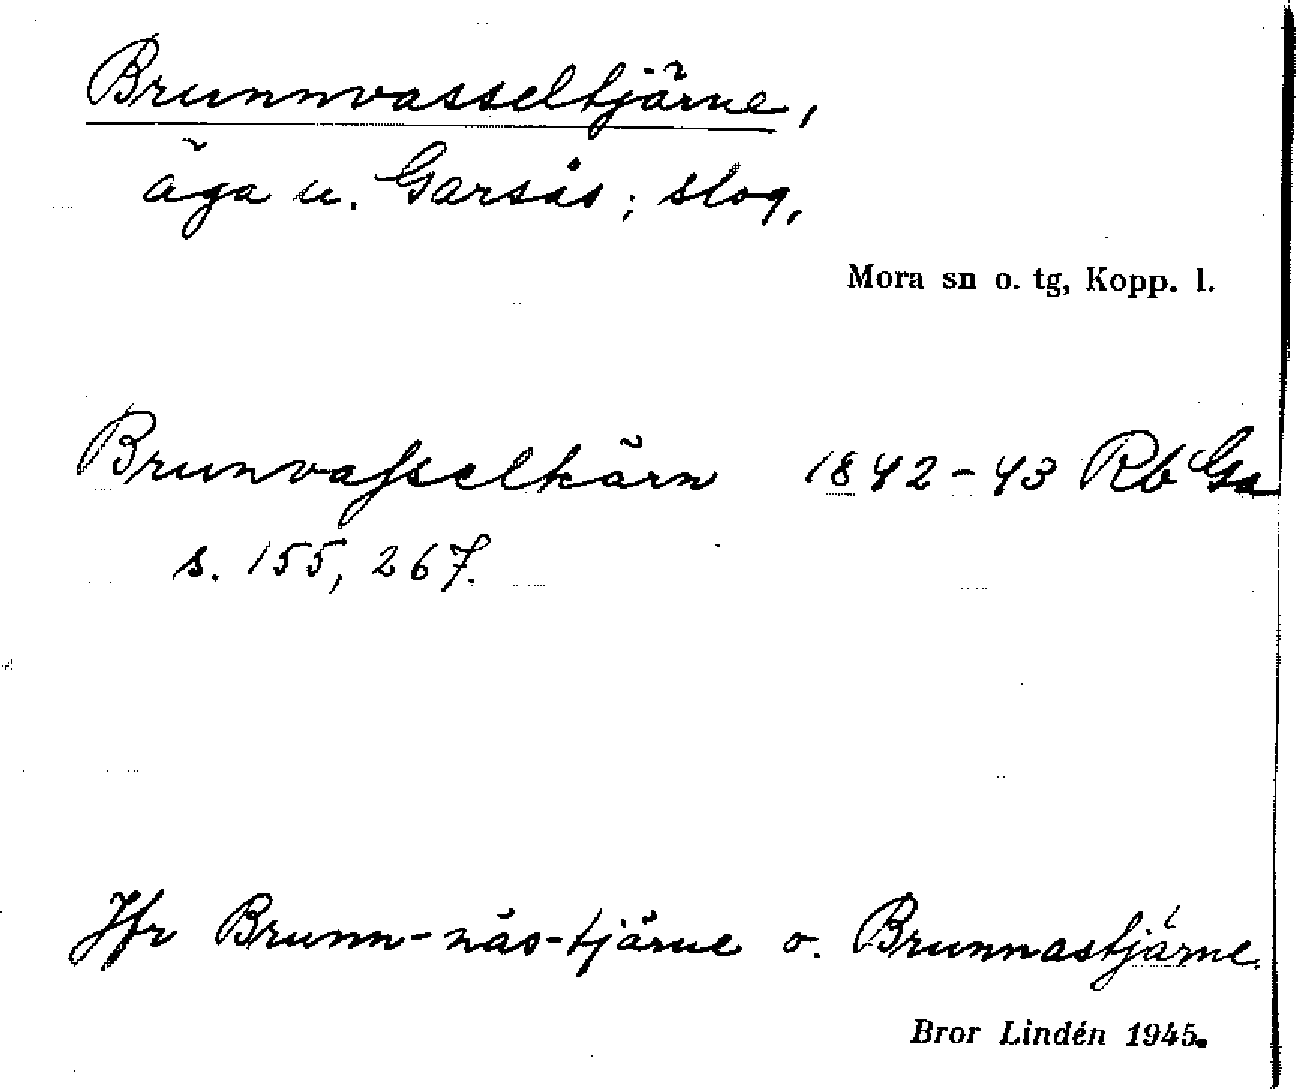 Brunnvasseltjärne,
äga u. Garsås; slog,
Mora sn o. tg, Kopp. l.
Brunvasselkärn 1842-43 Rb Ga
s. 155, 267.
Jfr Brunn-näs-tjärne o. Brunnastjärne.
Bror Lindén 1945.